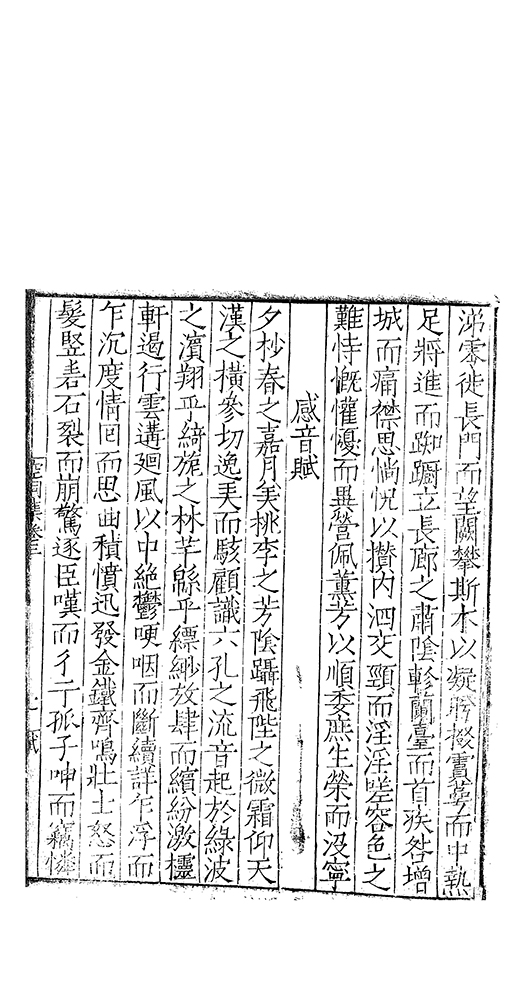 涕零徙長門而望闕攀斯木以凝眸掇蕡萼而中熱
足將進而踟躕立長廊之肅陰軫蘭臺而首疾咎增
城而痛襟思惝怳以攢內泗交頸而淫淫嗟容色之
難恃慨懽懮而異營佩薰芳以順委庶生榮而沒寧
感音賦
夕杪春之嘉月羙桃李之芳陰躡飛陛之微霜仰天
漢之橫參切逸羙而駭顧識六孔之流音起於綠波
之濱翔乎綺旎之林芊緜乎縹緲放肆而繽紛激櫺
軒遏行雲遘廻風以中絕鬱哽咽而斷續詳乍浮而
乍沉度情回而思曲積憤迅發金鐵齊鳴壯士怒而
髮豎砉石裂而崩驚逐臣嘆而彳亍孤子呻而竊憐
空同集卷三
七 賦